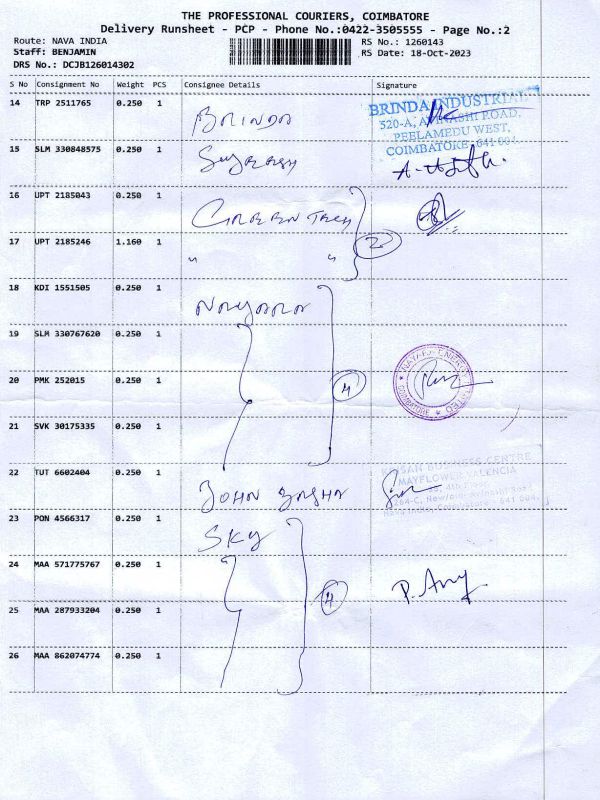 THE PROFESSIONAL COURIERS, COIMBATORE
Delivery Runsheet - PCP - Phone No.:0422-3505555 - Page No.:2
Route: NAVA INDIA RS No.: 1260143
Staff: BENJAMIN RS Date: 18-Oct-2023
DRS No.: DCJB126014302
S No Consignment No Weight PCS Consignee Details Signature
14 TRP 2511765 0.250 1 BRINDA
BRINDA INDUSTRIAL
520-A, AVINASHI ROAD,
PEELAMEDU WEST,
COIMBATORE - 641 004.
15 SLM 330848575 0.250 1
16 UPT 2185043 0.250 1 GREEN TECH
17 UPT 2185246 1.160 1 " " 2
18 KDI 1551505 0.250 1 NAYARA
19 SLM 330767620 0.250 1
20 PMK 252015 0.250 1 4
NAYARA ENERGY LIMITED
COIMBATORE
21 SVK 30175335 0.250 1
22 TUT 6602404 0.250 1 JOHN
BUSINESS CENTRE
MAYFLOWER VALENCIA
4th Floor
Avinashi Road
Coimbatore - 641 004.
23 PON 4566317 0.250 1 SKY
24 MAA 571775767 0.250 1 4
25 MAA 287933204 0.250 1
26 MAA 862074774 0.250 1